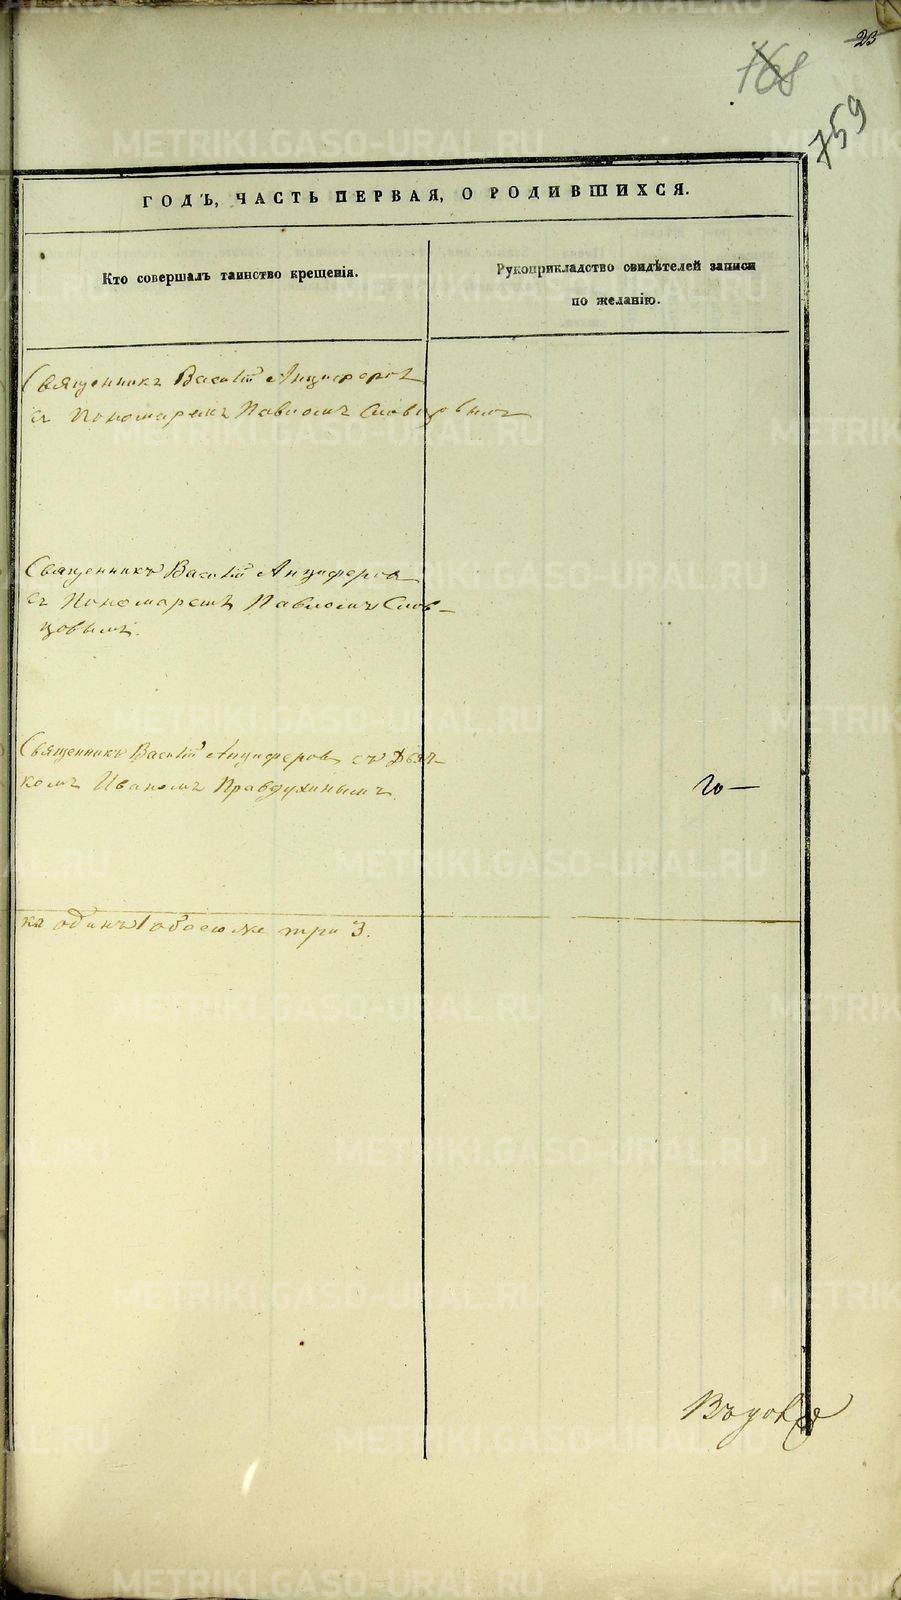 23
768
759
ГОДЪ, ЧАСТЬ ПЕРВАЯ, О РОДИВШИХСЯ.
Кто совершалъ таинство крещенія.
Рукоприкладство свидѣтелей записи
по желанію.
Священникъ Василій Анциферовъ
съ Пономаремъ Павломъ Словцовымъ
Священникъ Василій Анциферовъ
съ Пономаремъ Павломъ Слов-
цовымъ.
Священникъ Василій Анциферовъ съ Дьяч-
комъ Иваномъ Правдухинымъ.
ка одинъ 1 обоего же три 3.
METRIKI.GASO-URAL.RU